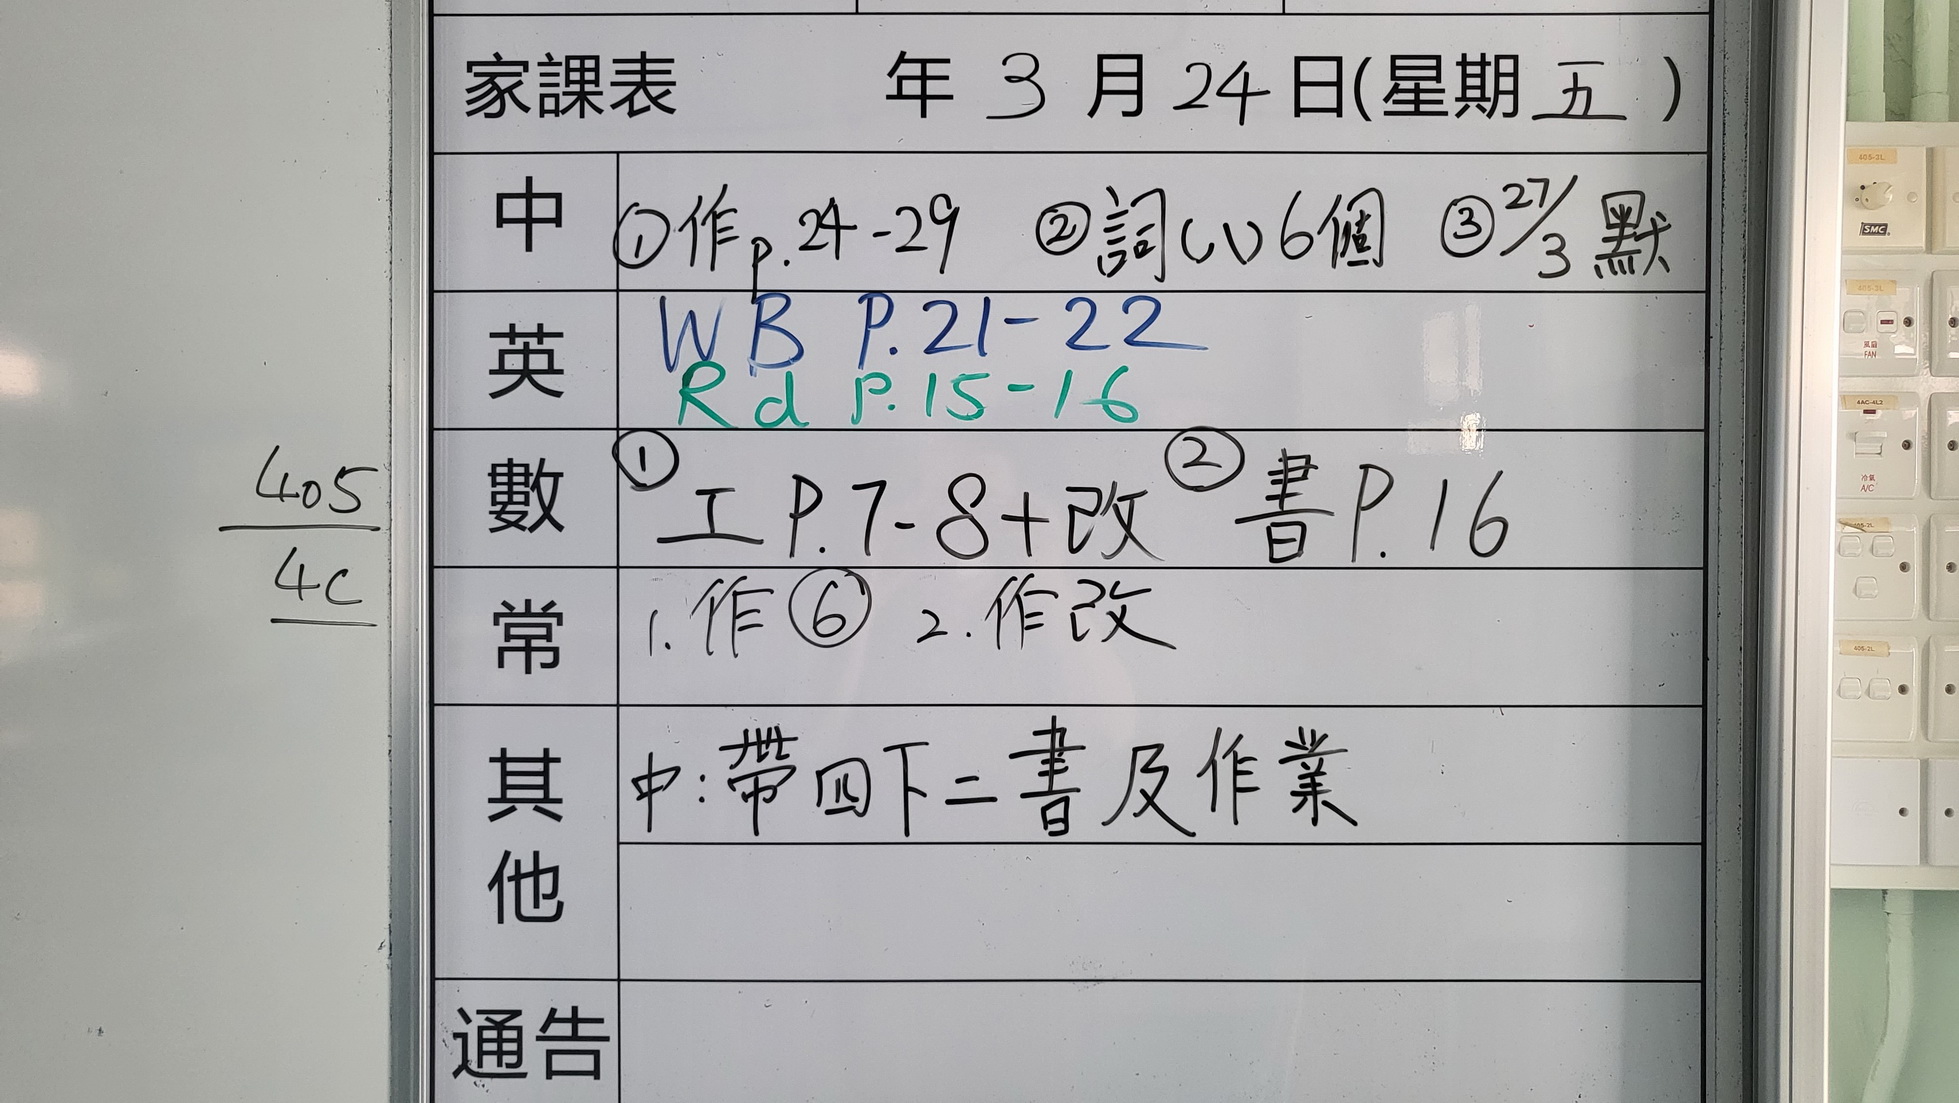 家課表 年 3 月 24 日(星期 五 )
中 ①作p.24-29 ②詞(八)6個 ③27/3 默
英 WB P.21-22
Rd P.15-16
數 ①工P.7-8+改 ②書P.16
常 1.作⑥ 2.作改
其他 中:帶四下二書及作業
通告
405
4C
SMC
風扇
FAN
4AC-4L2
冷氣
A/C